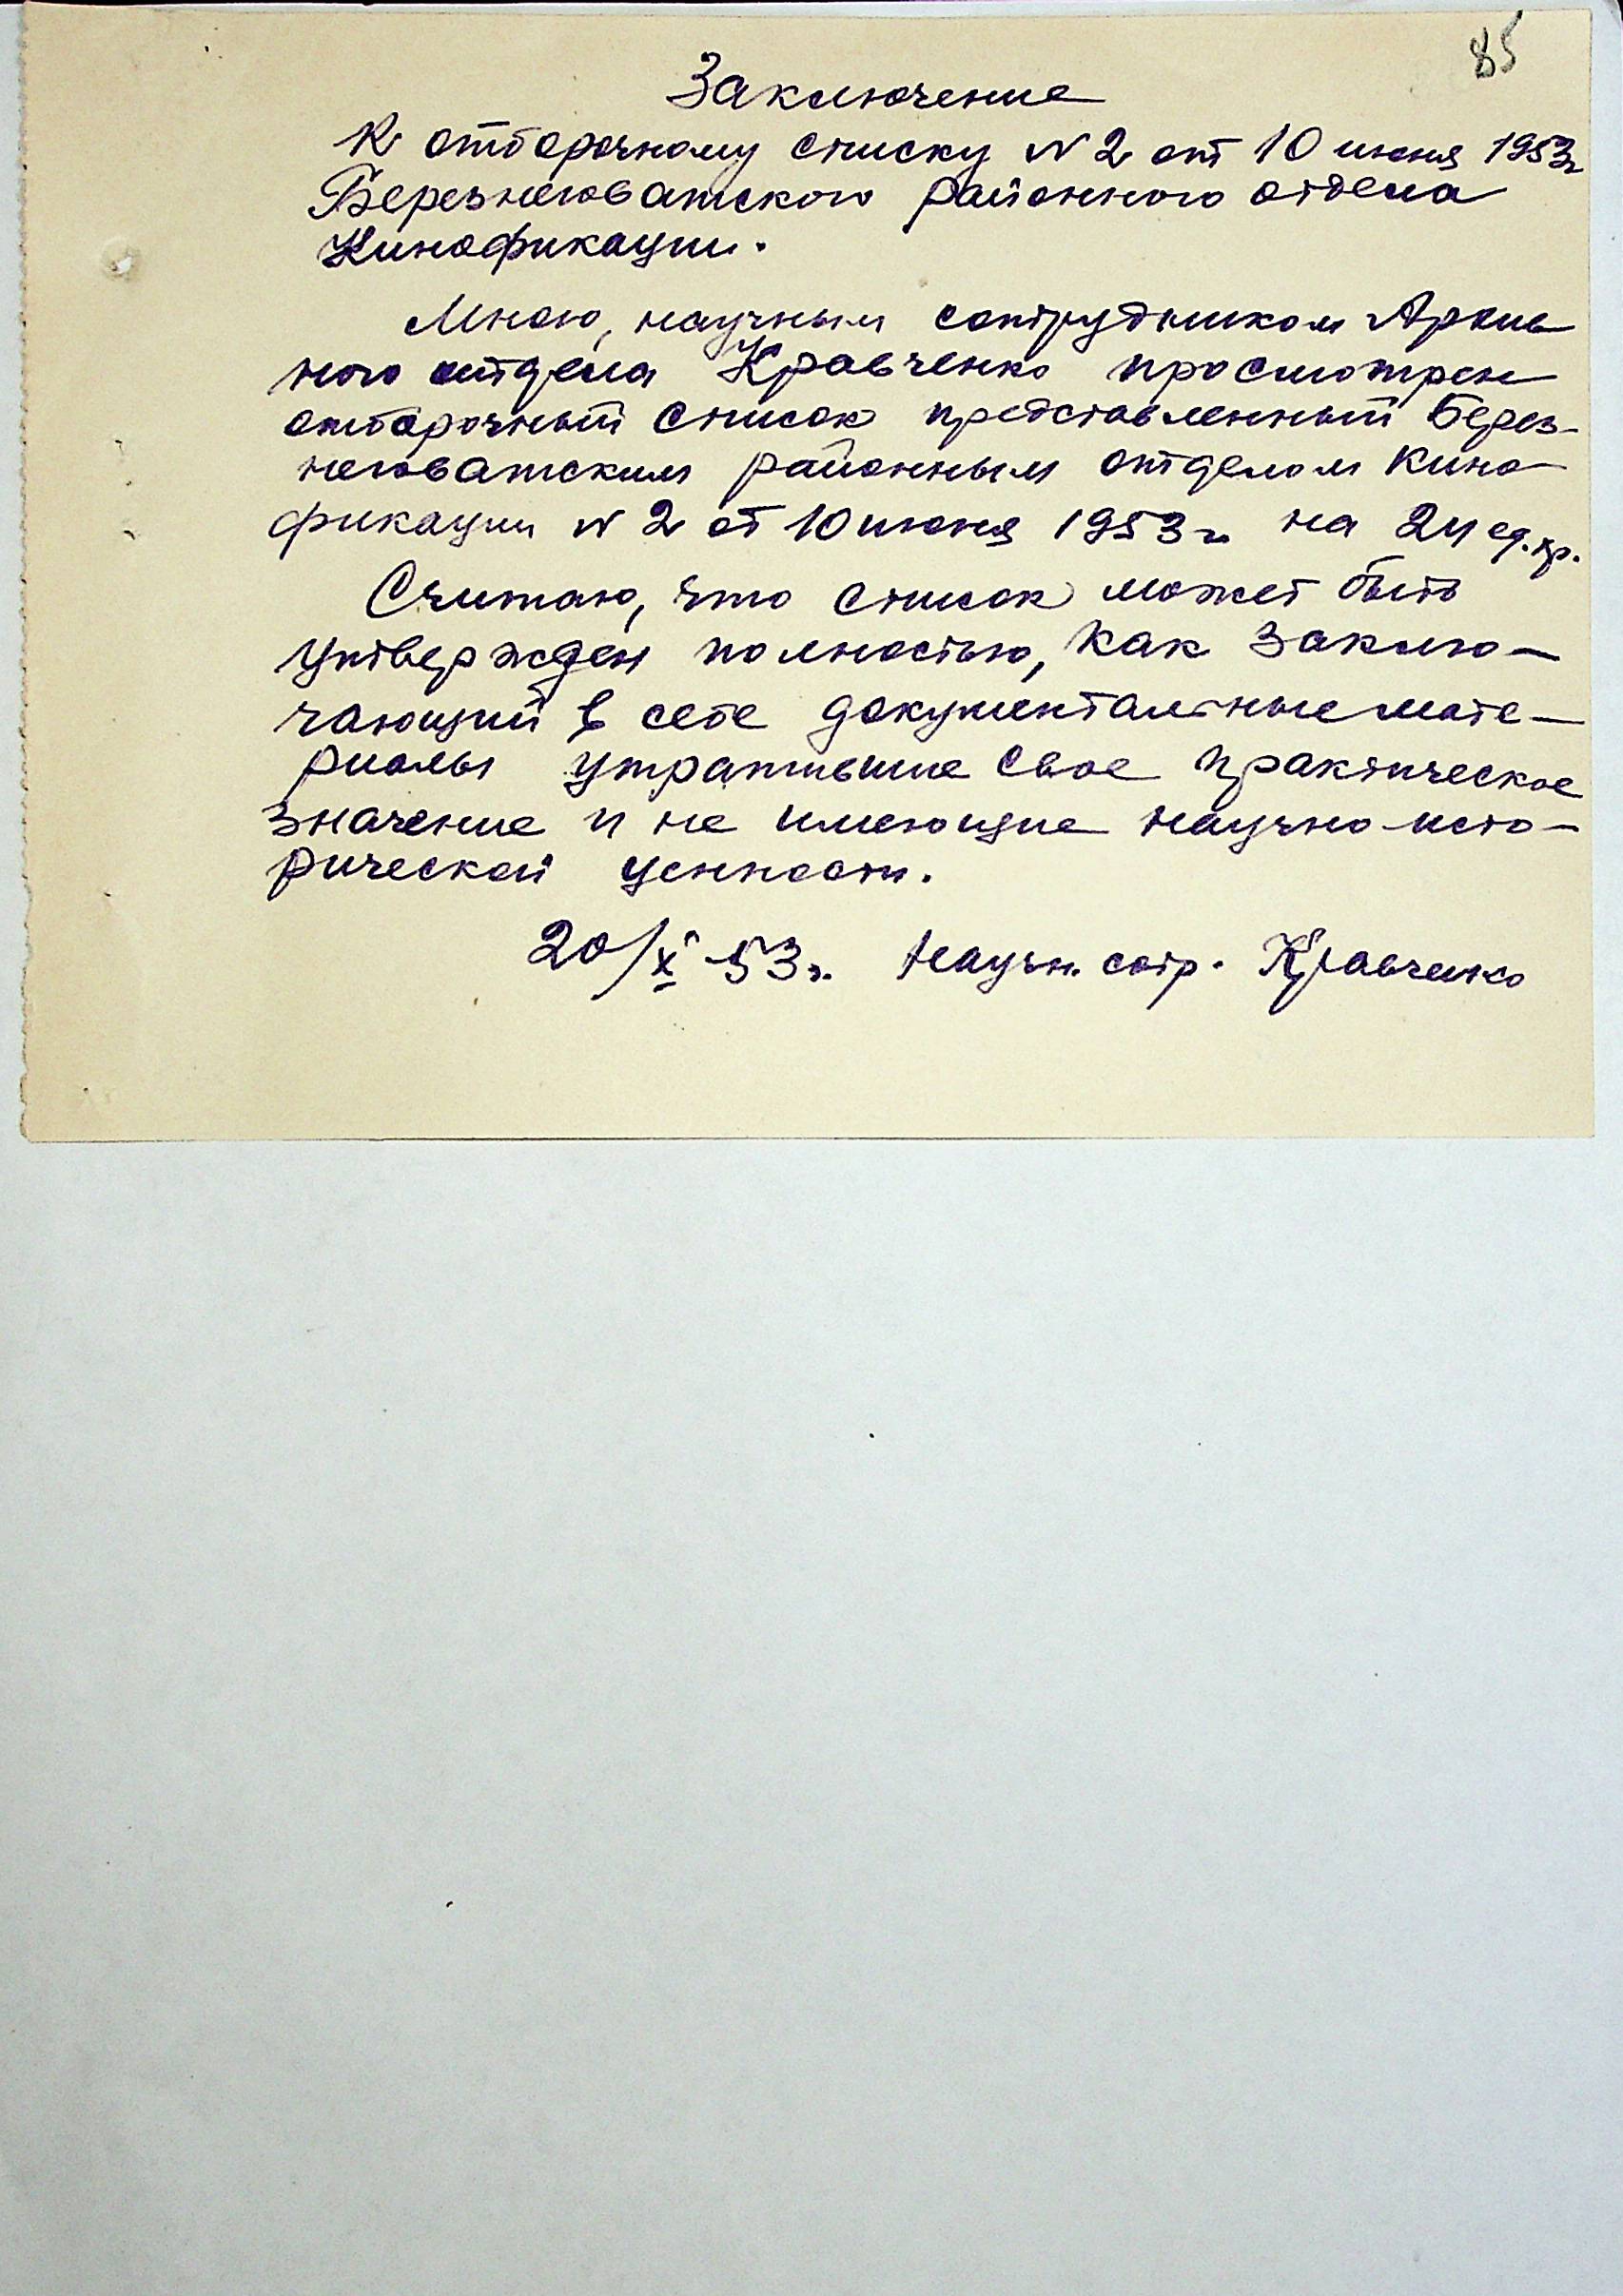 85
Заключение
К отборочному списку N 2 от 10 июня 1953г
Березнеговатского районного отдела
Кинофикации.
Мною, научным сотрудником Архив
ного отдела Кравченко просмотрен
отборочный список представленный Берез-
неговатским районным отделом кино-
фикации N 2 от 10 июня 1953 г. на ед. хр.
Считаю, что список может быть
утвержден полностью, как заклю-
чающий в себе документальные мате-
риалы утратившие свое практическое
значение и не имеющие научно-исто-
рической ценности.
20/X-53г. Научн. сотр. Кравченко